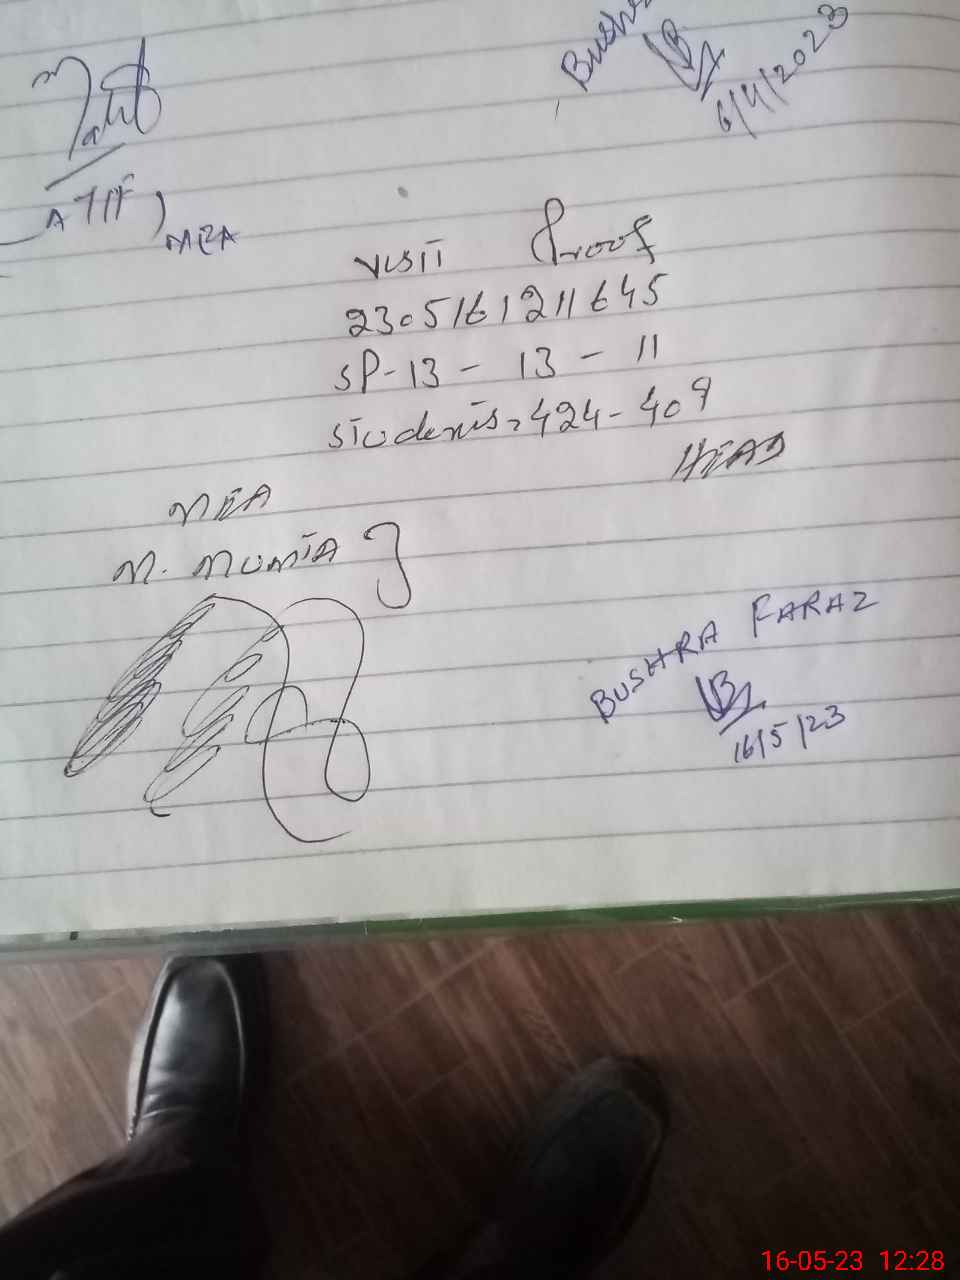 ATIF
MEA
6/4/2023
Visit Proof
2305161211645
SP-13 - 13 - 11
Students, 424-409
HEAD
MEA
BUSHRA FARAZ
16/5/23
16-05-23 12:28